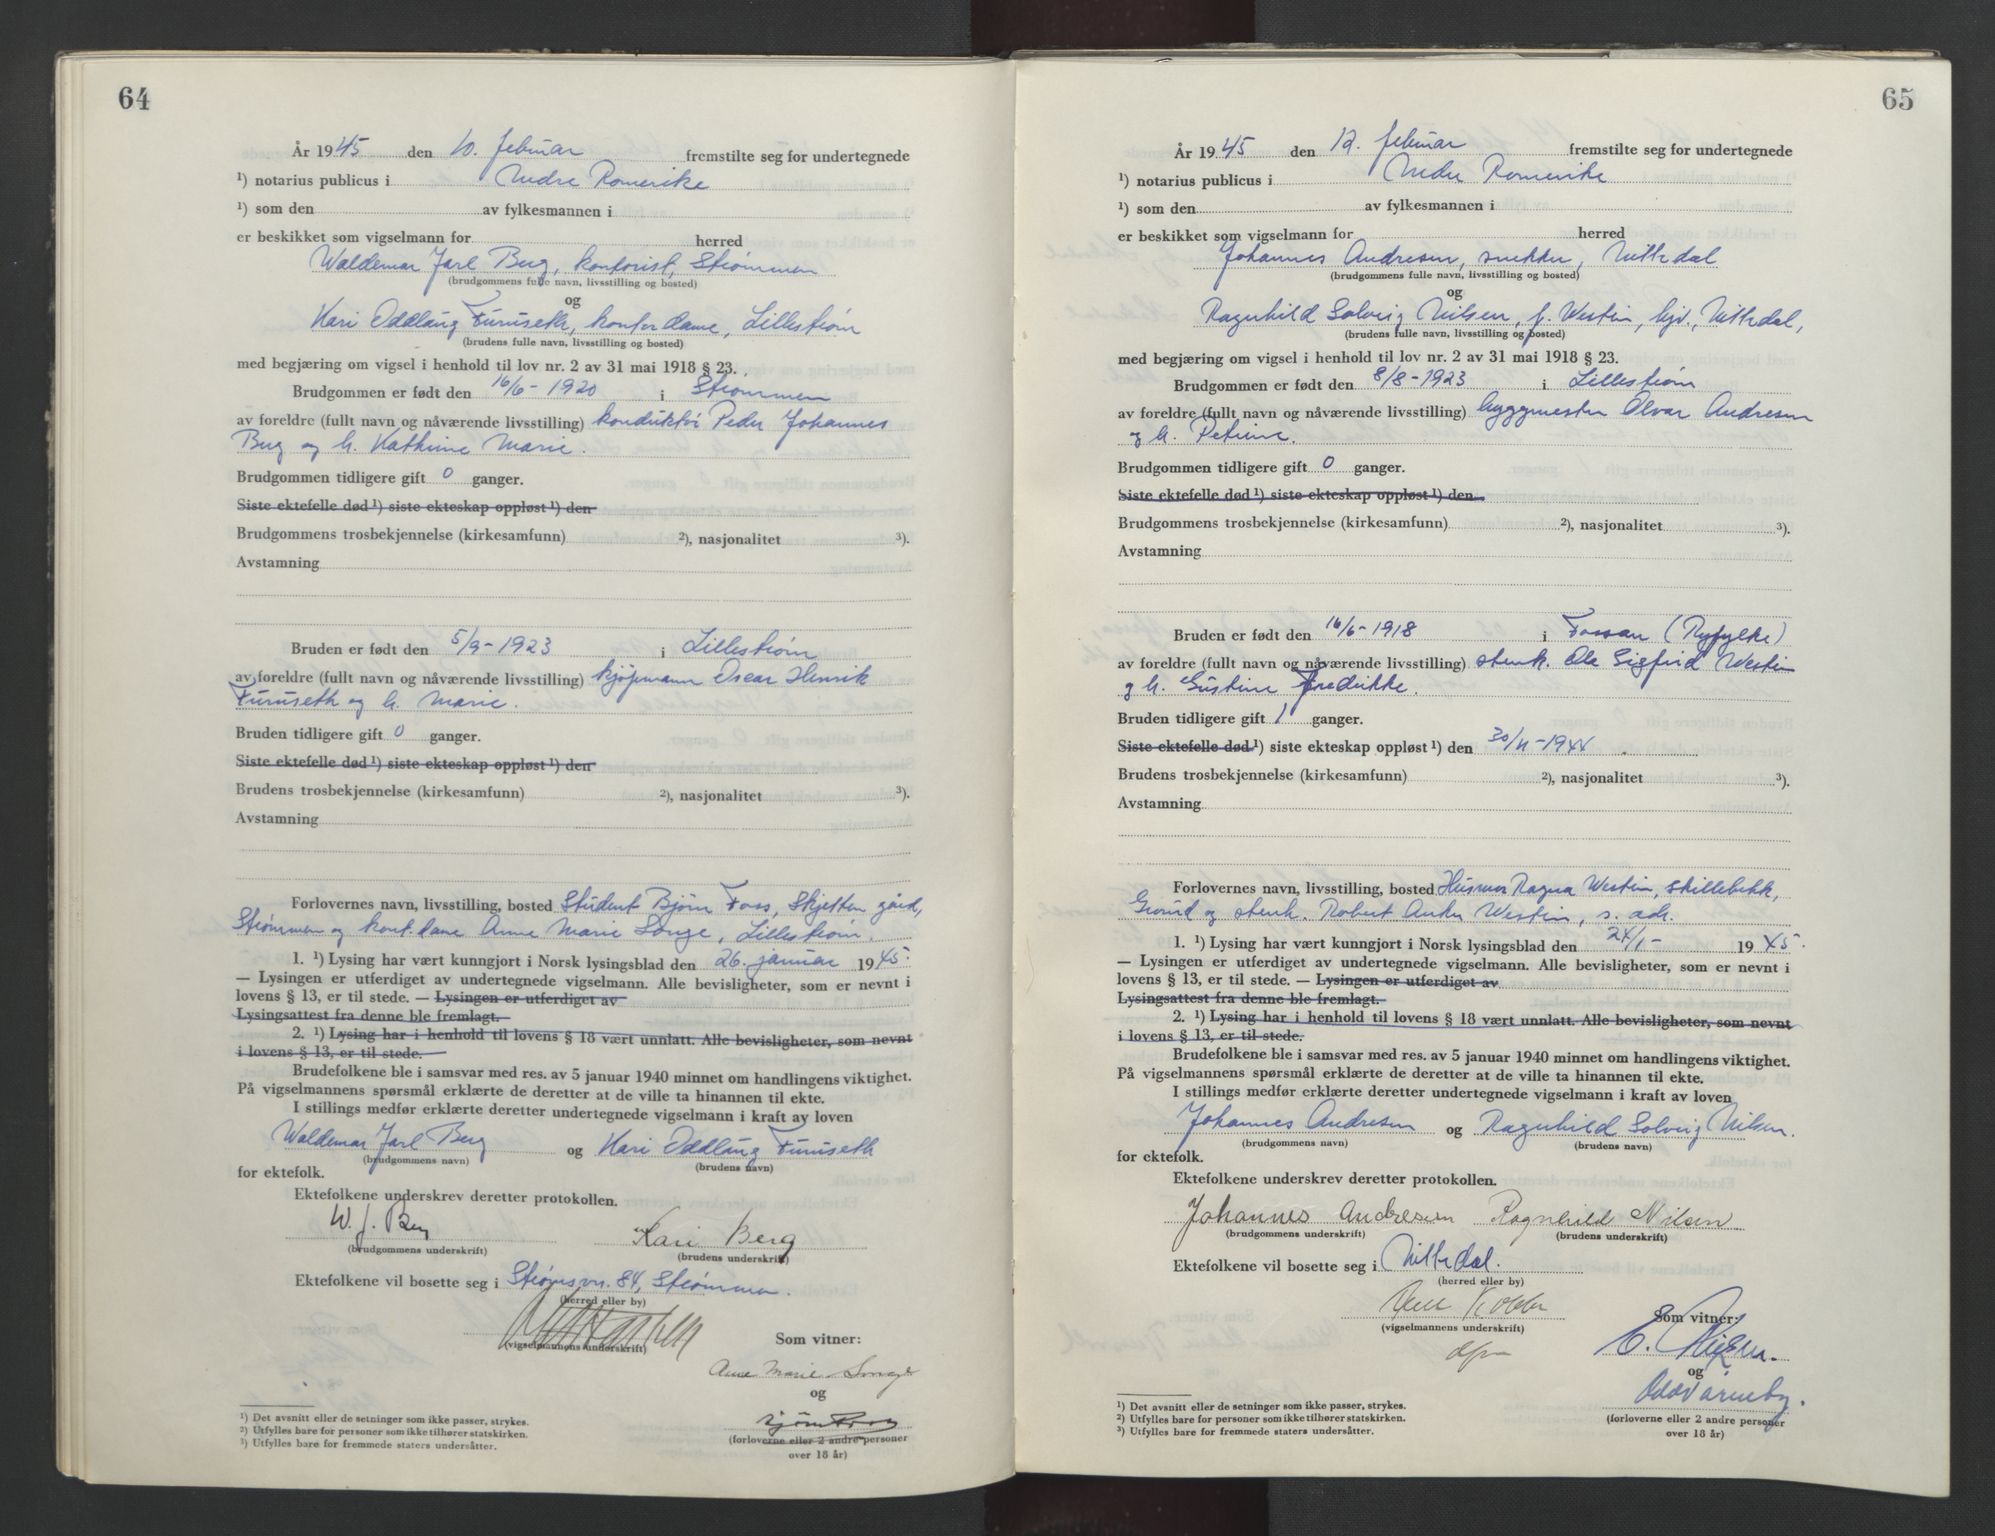 64
År 1945 den 10. februar fremstilte seg for undertegnede
¹) notarius publicus i Nedre Romerike
¹) som den av fylkesmannen i
er beskikket som vigselmann for herred
Waldemar Jarl Berg, kontorist, Strømmen
(brudgommens fulle navn, livsstilling og bosted)
og
Kari Oddlaug Furuseth, kontordame, Lillestrøm
(brudens fulle navn, livsstilling og bosted)
med begjæring om vigsel i henhold til lov nr. 2 av 31 mai 1918 § 23.
Brudgommen er født den 16/6-1920 i Strømmen
av foreldre (fullt navn og nåværende livsstilling) konduktør Peder Johannes
Berg og h. Kathrine Marie.
Brudgommen tidligere gift 0 ganger.
Siste ektefelle død ¹) siste ekteskap oppløst ¹) den
Brudgommens trosbekjennelse (kirkesamfunn) ²), nasjonalitet ³).
Avstamning
Bruden er født den 5/9-1923 i Lillestrøm
av foreldre (fullt navn og nåværende livsstilling) kjøpmann Oscar Henrik
Furuseth og h. Marie.
Bruden tidligere gift 0 ganger.
Siste ektefelle død ¹) siste ekteskap oppløst ¹) den
Brudens trosbekjennelse (kirkesamfunn) ²), nasjonalitet ³).
Avstamning
Forlovernes navn, livsstilling, bosted Student Bjørn Foss, Skjetten gård,
Strømmen og kont.dame Anne Marie Songe, Lillestrøm.
1. ¹) Lysing har vært kunngjort i Norsk lysingsblad den 26. januar 1945.
— Lysingen er utferdiget av undertegnede vigselmann. Alle bevisligheter, som er nevnt i
lovens § 13, er til stede. — Lysingen er utferdiget av
Lysingsattest fra denne ble fremlagt.
2. ¹) Lysing har i henhold til lovens § 18 vært unnlatt. Alle bevisligheter, som nevnt
i lovens § 13, er til stede.
Brudefolkene ble i samsvar med res. av 5 januar 1940 minnet om handlingens viktighet.
På vigselmannens spørsmål erklærte de deretter at de ville ta hinannen til ekte.
I stillings medfør erklærte deretter undertegnede vigselmann i kraft av loven
Waldemar Jarl Berg og Kari Oddlaug Furuseth
(brudgommens navn) (brudens navn)
for ektefolk.
Ektefolkene underskrev deretter protokollen.
W. J. Berg Kari Berg
(brudgommens underskrift) (brudens underskrift)
Ektefolkene vil bosette seg i Strømsvn. 84, Strømmen.
(herred eller by)
(vigselmannens underskrift)
Som vitner:
Anne Marie Songe
og
Bjørn Foss
(forloverne eller 2 andre personer
over 18 år)
¹) Det avsnitt eller de setninger som ikke passer, strykes.
²) Utfylles bare for personer som ikke tilhører statskirken.
³) Utfylles bare for fremmede staters undersåtter.
65
År 1945 den 12. februar fremstilte seg for undertegnede
¹) notarius publicus i Nedre Romerike
¹) som den av fylkesmannen i
er beskikket som vigselmann for herred
Johannes Andresen, snekker, Nittedal
(brudgommens fulle navn, livsstilling og bosted)
og
Ragnhild Solveig Nilsen, f. Westin, hjv., Nittedal,
(brudens fulle navn, livsstilling og bosted)
med begjæring om vigsel i henhold til lov nr. 2 av 31 mai 1918 § 23.
Brudgommen er født den 8/8-1923 i Lillestrøm
av foreldre (fullt navn og nåværende livsstilling) byggmester Olvar Andresen
og h. Petrine.
Brudgommen tidligere gift 0 ganger.
Siste ektefelle død ¹) siste ekteskap oppløst ¹) den
Brudgommens trosbekjennelse (kirkesamfunn) ²), nasjonalitet ³).
Avstamning
Bruden er født den 16/6-1918 i Fossan (Ryfylke)
av foreldre (fullt navn og nåværende livsstilling) stenh. Ole Sigfrid Westin
og h. Gustine Fredrikke.
Bruden tidligere gift 1 ganger.
Siste ektefelle død ¹) siste ekteskap oppløst ¹) den 30/11-1944
Brudens trosbekjennelse (kirkesamfunn) ²), nasjonalitet ³).
Avstamning
Forlovernes navn, livsstilling, bosted Husmor Ragna Westin, Skillebekk,
Grorud og stenh. Robert Westin, s. adr.
1. ¹) Lysing har vært kunngjort i Norsk lysingsblad den 24/1- 1945.
— Lysingen er utferdiget av undertegnede vigselmann. Alle bevisligheter, som er nevnt i
lovens § 13, er til stede. — Lysingen er utferdiget av
Lysingsattest fra denne ble fremlagt.
2. ¹) Lysing har i henhold til lovens § 18 vært unnlatt. Alle bevisligheter, som nevnt
i lovens § 13, er til stede.
Brudefolkene ble i samsvar med res. av 5 januar 1940 minnet om handlingens viktighet.
På vigselmannens spørsmål erklærte de deretter at de ville ta hinannen til ekte.
I stillings medfør erklærte deretter undertegnede vigselmann i kraft av loven
Johannes Andresen og Ragnhild Solveig Nilsen.
(brudgommens navn) (brudens navn)
for ektefolk.
Ektefolkene underskrev deretter protokollen.
Johannes Andresen Ragnhild Nilsen
(brudgommens underskrift) (brudens underskrift)
Ektefolkene vil bosette seg i Nittedal.
(herred eller by)
(vigselmannens underskrift)
Som vitner:
og
(forloverne eller 2 andre personer
over 18 år)
¹) Det avsnitt eller de setninger som ikke passer, strykes.
²) Utfylles bare for personer som ikke tilhører statskirken.
³) Utfylles bare for fremmede staters undersåtter.